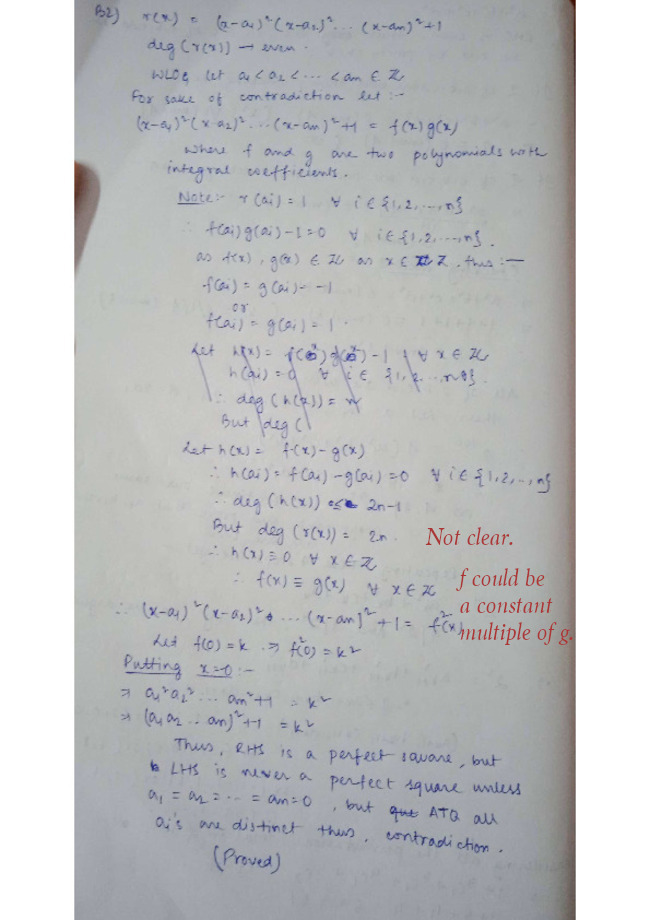 B2) r(x) = (x-a₁)²(x-a₂)² ... (x-an)²+1
deg(r(x)) → even.
WLOG let a₁<a₂<...<an ∈ ℤ
For sake of contradiction let :-
(x-a₁)²(x-a₂)²...(x-an)²+1 = f(x)g(x)
where f and g are two polynomials with
integral coefficients.
Note:- r(ai)=1 ∀ i∈{1,2,...,n}
∴ f(ai)g(ai)-1=0 ∀ i∈{1,2,...,n}.
as f(x), g(x) ∈ ℤ as x∈ ℤ. thus:-
f(ai) = g(ai) = -1
or
f(ai) = g(ai) = 1.
Let h(x) = f(x)g(x)-1 ∀ x∈ℤ
h(ai)=0 ∀ i∈ {1,2,...n}.
∴ deg(h(x)) = n
But deg(
Let h(x) = f(x)-g(x)
∴ h(ai) = f(ai)-g(ai)=0 ∀ i∈{1,2,..,n}
∴ deg(h(x)) ≤ 2n-1
But deg(r(x)) = 2n.
Not clear.
∴ h(x)≡0 ∀ x∈ℤ
∴ f(x) ≡ g(x) ∀ x∈ℤ
f could be
a constant
multiple of g.
∴ (x-a₁)²(x-a₂)² ... (x-an)²+1 = f²(x)
Let f(0)=k ⇒ f²(0)=k²
Putting x=0:-
⇒ a₁²a₂² ... an²+1 = k²
⇒ (a₁a₂...an)²+1 = k²
Thus, RHS is a perfect square, but
LHS is never a perfect square unless
a₁=a₂=...=an=0, but ATQ all
ai's are distinct thus, contradiction.
(Proved)